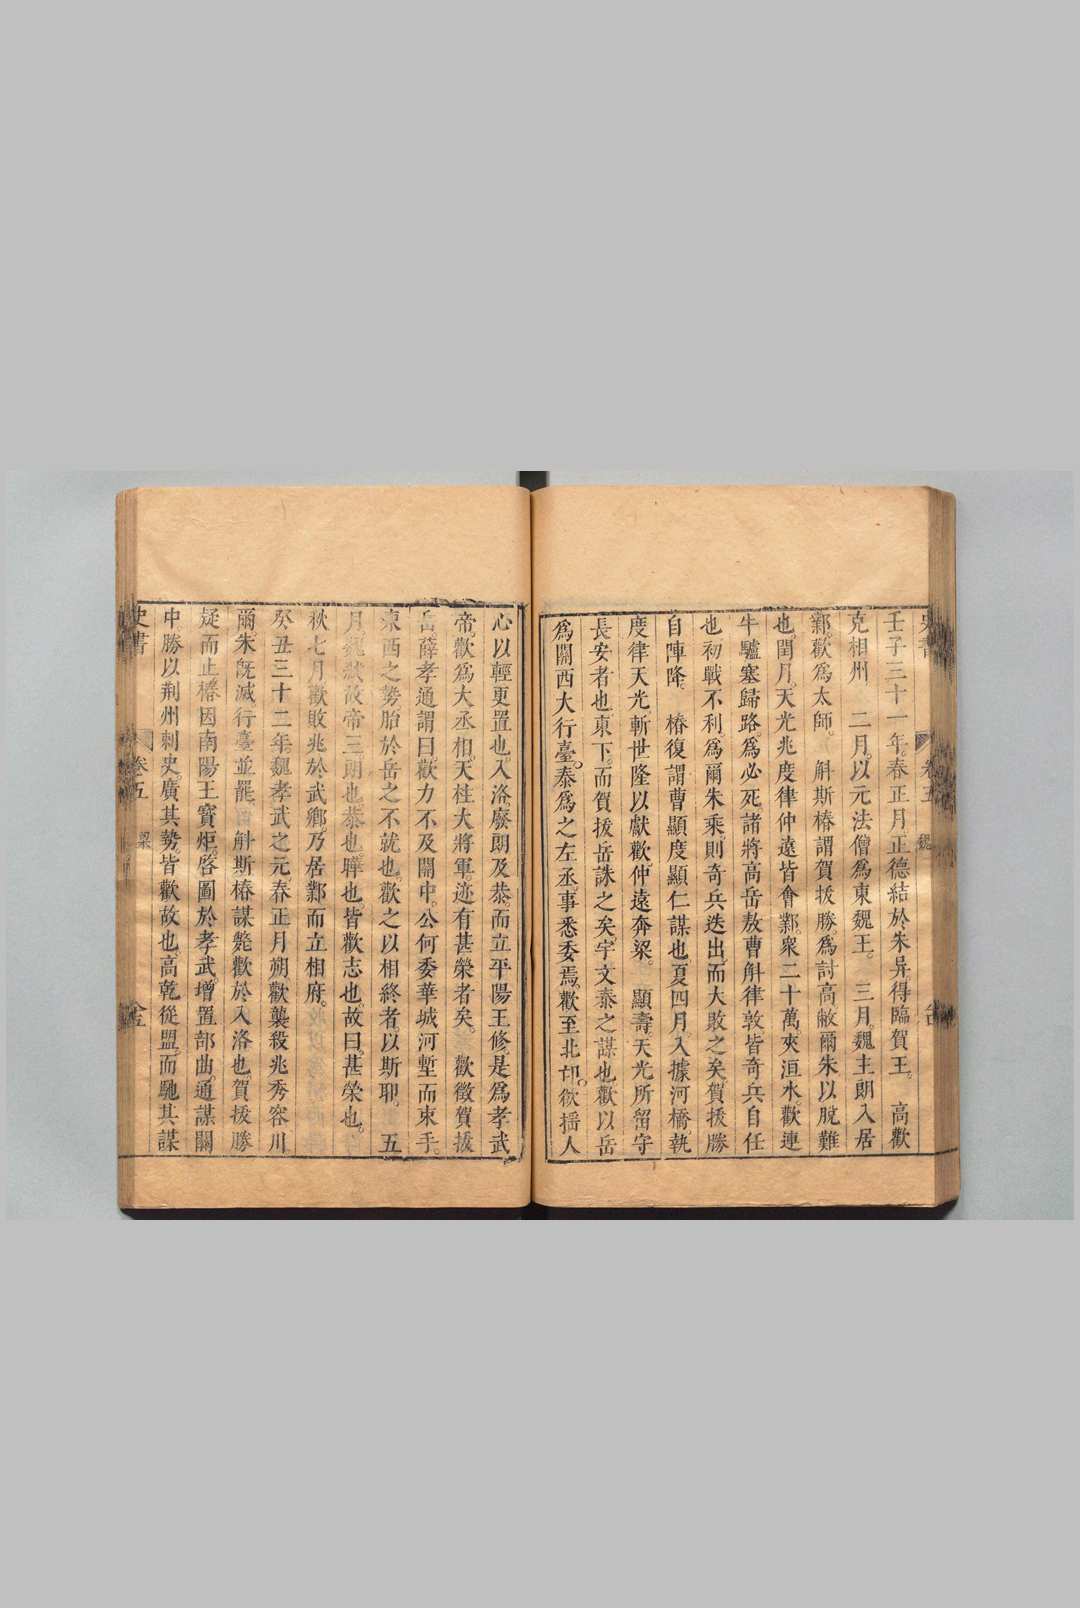 壬子三十一年。春正月正德結於朱异得臨賀王。　高歡
克相州　二月。以元法僧爲東魏王。　三月。魏主朗入居
鄴。歡爲太師。　斛斯椿謂賀拔勝爲討高敝爾朱以脫難
也。閏月。天光兆度律仲遠皆會鄴。衆二十萬。夾洹水。歡連
牛驢塞歸路。爲必死。諸將高岳敖曹斛律敦皆奇兵自任
也。初戰不利。爲爾朱乘。則奇兵迭出。而大敗之矣。賀拔勝
自陣降。　椿復謂曹顯度顯仁謀也。夏四月。入據河橋。執
度律天光。斬世隆以獻歡。仲遠奔梁。　顯壽。天光所留守
長安者也。東下。而賀拔岳誅之矣。宇文泰之謀也。歡以岳
爲關西大行臺。泰爲之左丞。事悉委焉。歡至北邙。欲揺人
心以輕更置也。入洛。廢朗及恭。而立平陽王修。是爲孝武
帝。歡爲大丞相。天柱大將軍。迹有甚榮者矣。　歡徵賀拔
岳。薛孝通謂曰。歡力不及關中。公何委華城河塹而束手。
東西之勢胎於岳之不就也。歡之以相終者。以斯耶。　五
月。魏弑故帝三。朗也恭也曄也。皆歡志也。故曰。甚榮也。
秋七月。歡敗兆於武鄉。乃居鄴而立相府。
癸丑三十二年。魏孝武之元。春正月朔。歡襲殺兆秀容川
爾朱既滅。行臺並罷。斛斯椿謀斃歡於入洛也。賀拔勝
疑而止。椿因南陽王寶炬。啓圖於孝武。增置部曲。通謀關
中。勝以荆州刺史廣其勢。皆歡故也。高乾從盟。而馳其謀
史書　卷五　梁